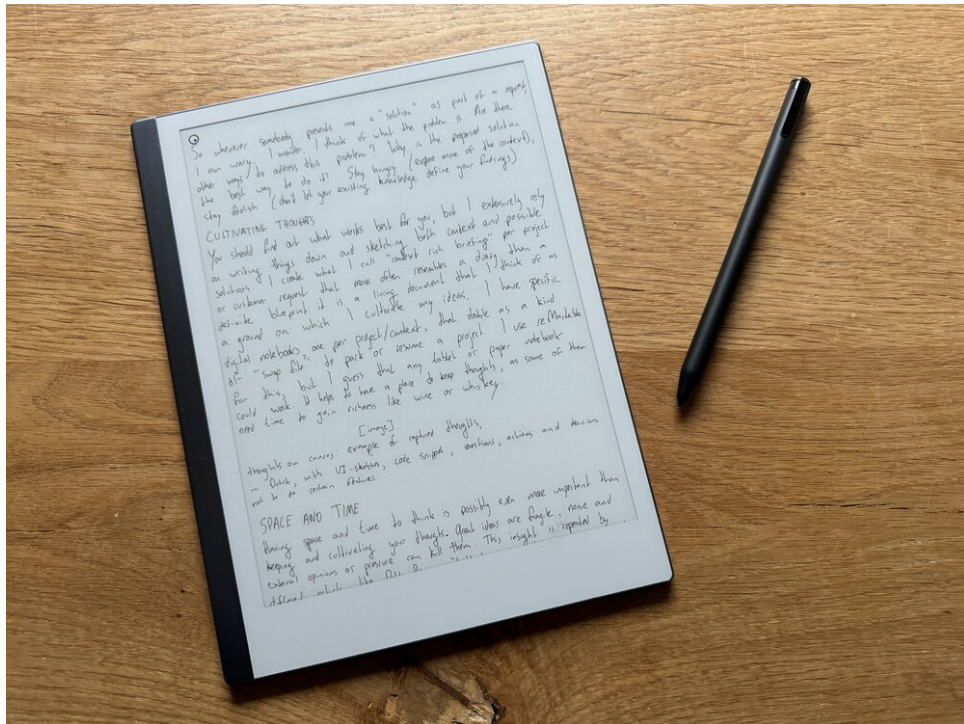 So whenever somebody presents me a "solution" as part of a request,
I am wary. I wonder. I think of what the problem is. Are there
other ways to adress this problem? Why is the proposed solution
the best way to do it? Stay hungry (explore more of the context),
stay foolish (don't let your existing knowledge define your findings).
CULTIVATING THOUGHTS
You should find out what works best for you, but I extensively rely
on writing things down and sketching both context and possible
solutions. I create what I call "context rich briefing" per project
or customer request that more often resembles a diary than a
definite blueprint: it is a living document that I think of as
a ground on which I cultivate my ideas. I have specific
digital notebooks, one per project/context, that double as a kind
of "swap file" to park or resume a project. I use reMarkable
for this, but I guess that any tablet or paper notebook
could work. It helps to have a place to keep thoughts, as some of them
need time to gain richness like wine or whiskey.
[image]
thoughts on canvas: example of captured thoughts,
in Dutch, with UI-sketches, code snippet, questions, actions and decisions
not to do certain features.
SPACE AND TIME
Having space and time to think is possibly even more important than
keeping and cultivating your thoughts. Great ideas are fragile, noise and
external opinions or pressure can kill them. This insight is repeated by
different artists like